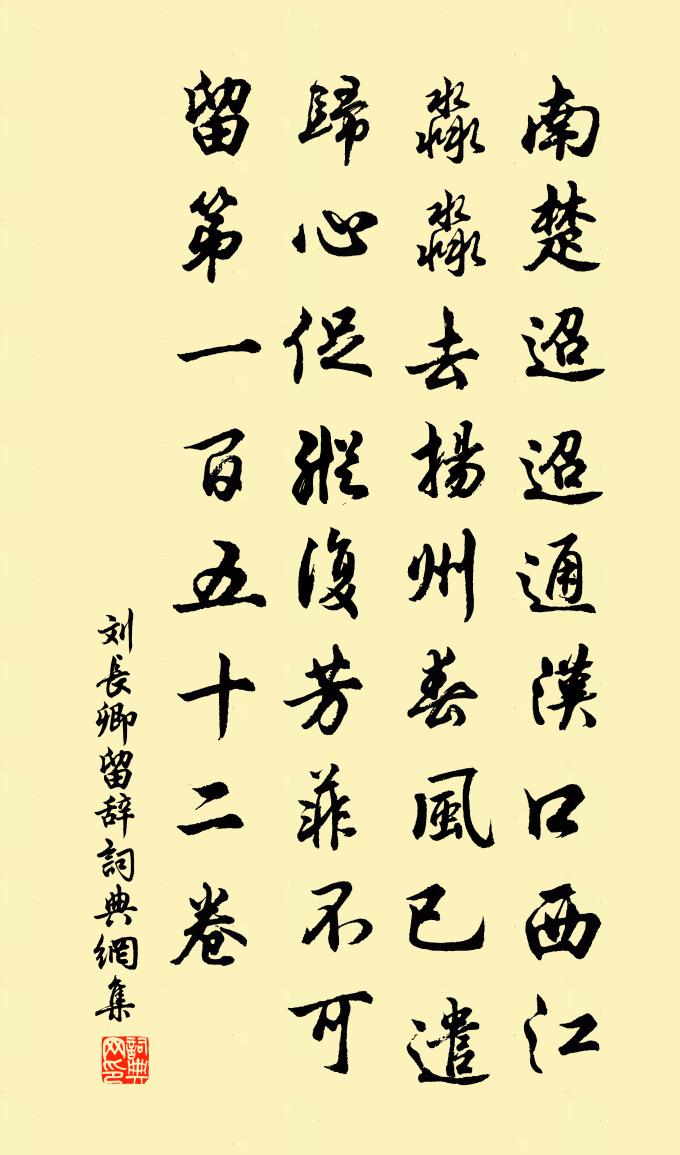 南楚迢迢通漢口西江
淼淼去揚州春風已遣
歸心促縱復芳菲不可
留第一百五十二卷
刘長卿留辞詞典網集
詞典网印